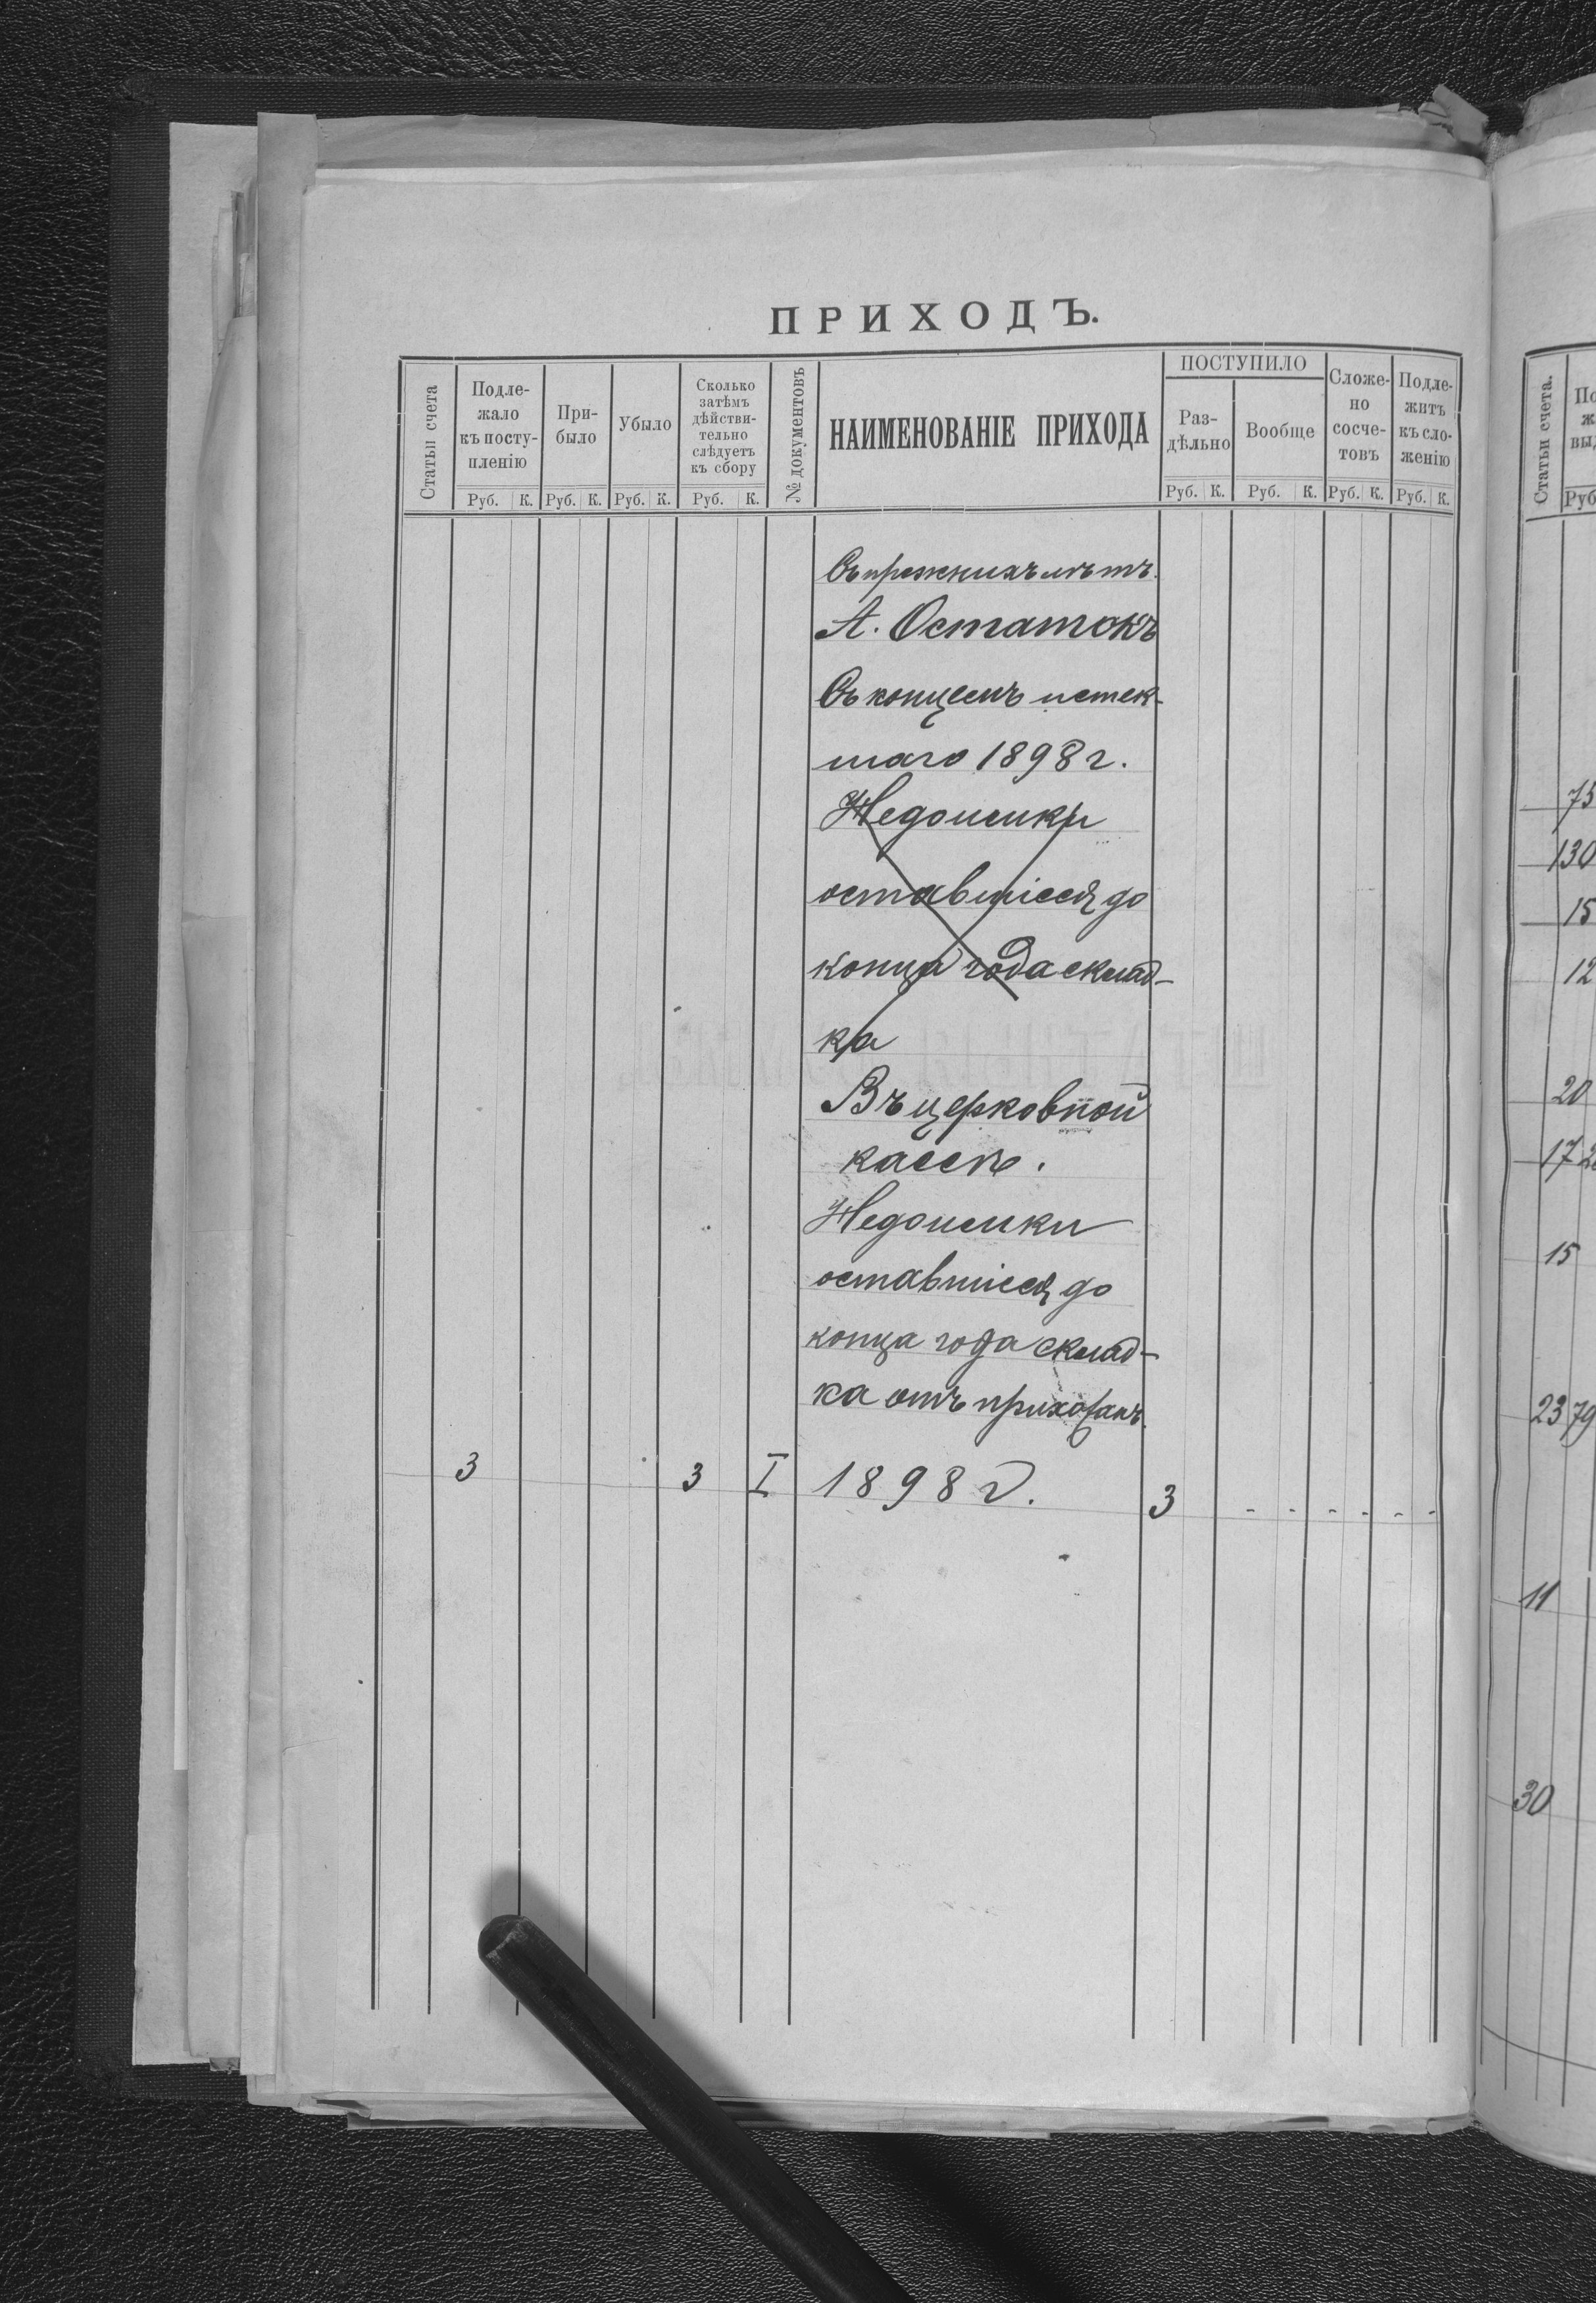 ПРИХОДЪ.
Статьи счета
Подле-
жало
къ посту-
пленію
При-
было
Убыло
Сколько
затѣмъ
дѣйстви-
тельно
слѣдуетъ
къ сбору
№ документовъ
НАИМЕНОВАНІЕ ПРИХОДА
ПОСТУПИЛО
Раз-
дѣльно
Вообще
Сложе-
но
сосче-
товъ
Подле-
житъ
къ сло-
женію
Руб. К. Руб. К. Руб. К. Руб. К. Руб. К. Руб. К. Руб. К. Руб. К.
Съ прежнихъ лѣтъ.
А. Остатокъ
Съ концемъ истек-
шаго 1898 г.
Недоимки
оставшіеся до
конца года склад-
ка
Въ церковной
кассѣ.
Недоимки
оставшіеся до
конца года склад-
ка отъ прихожанъ.
3 3 I 1898 г. 3 - - - - - -
Статьи счета.
По
ж
вы
Руб
75
130
15
12
20
17 2
15
23 79
11
30